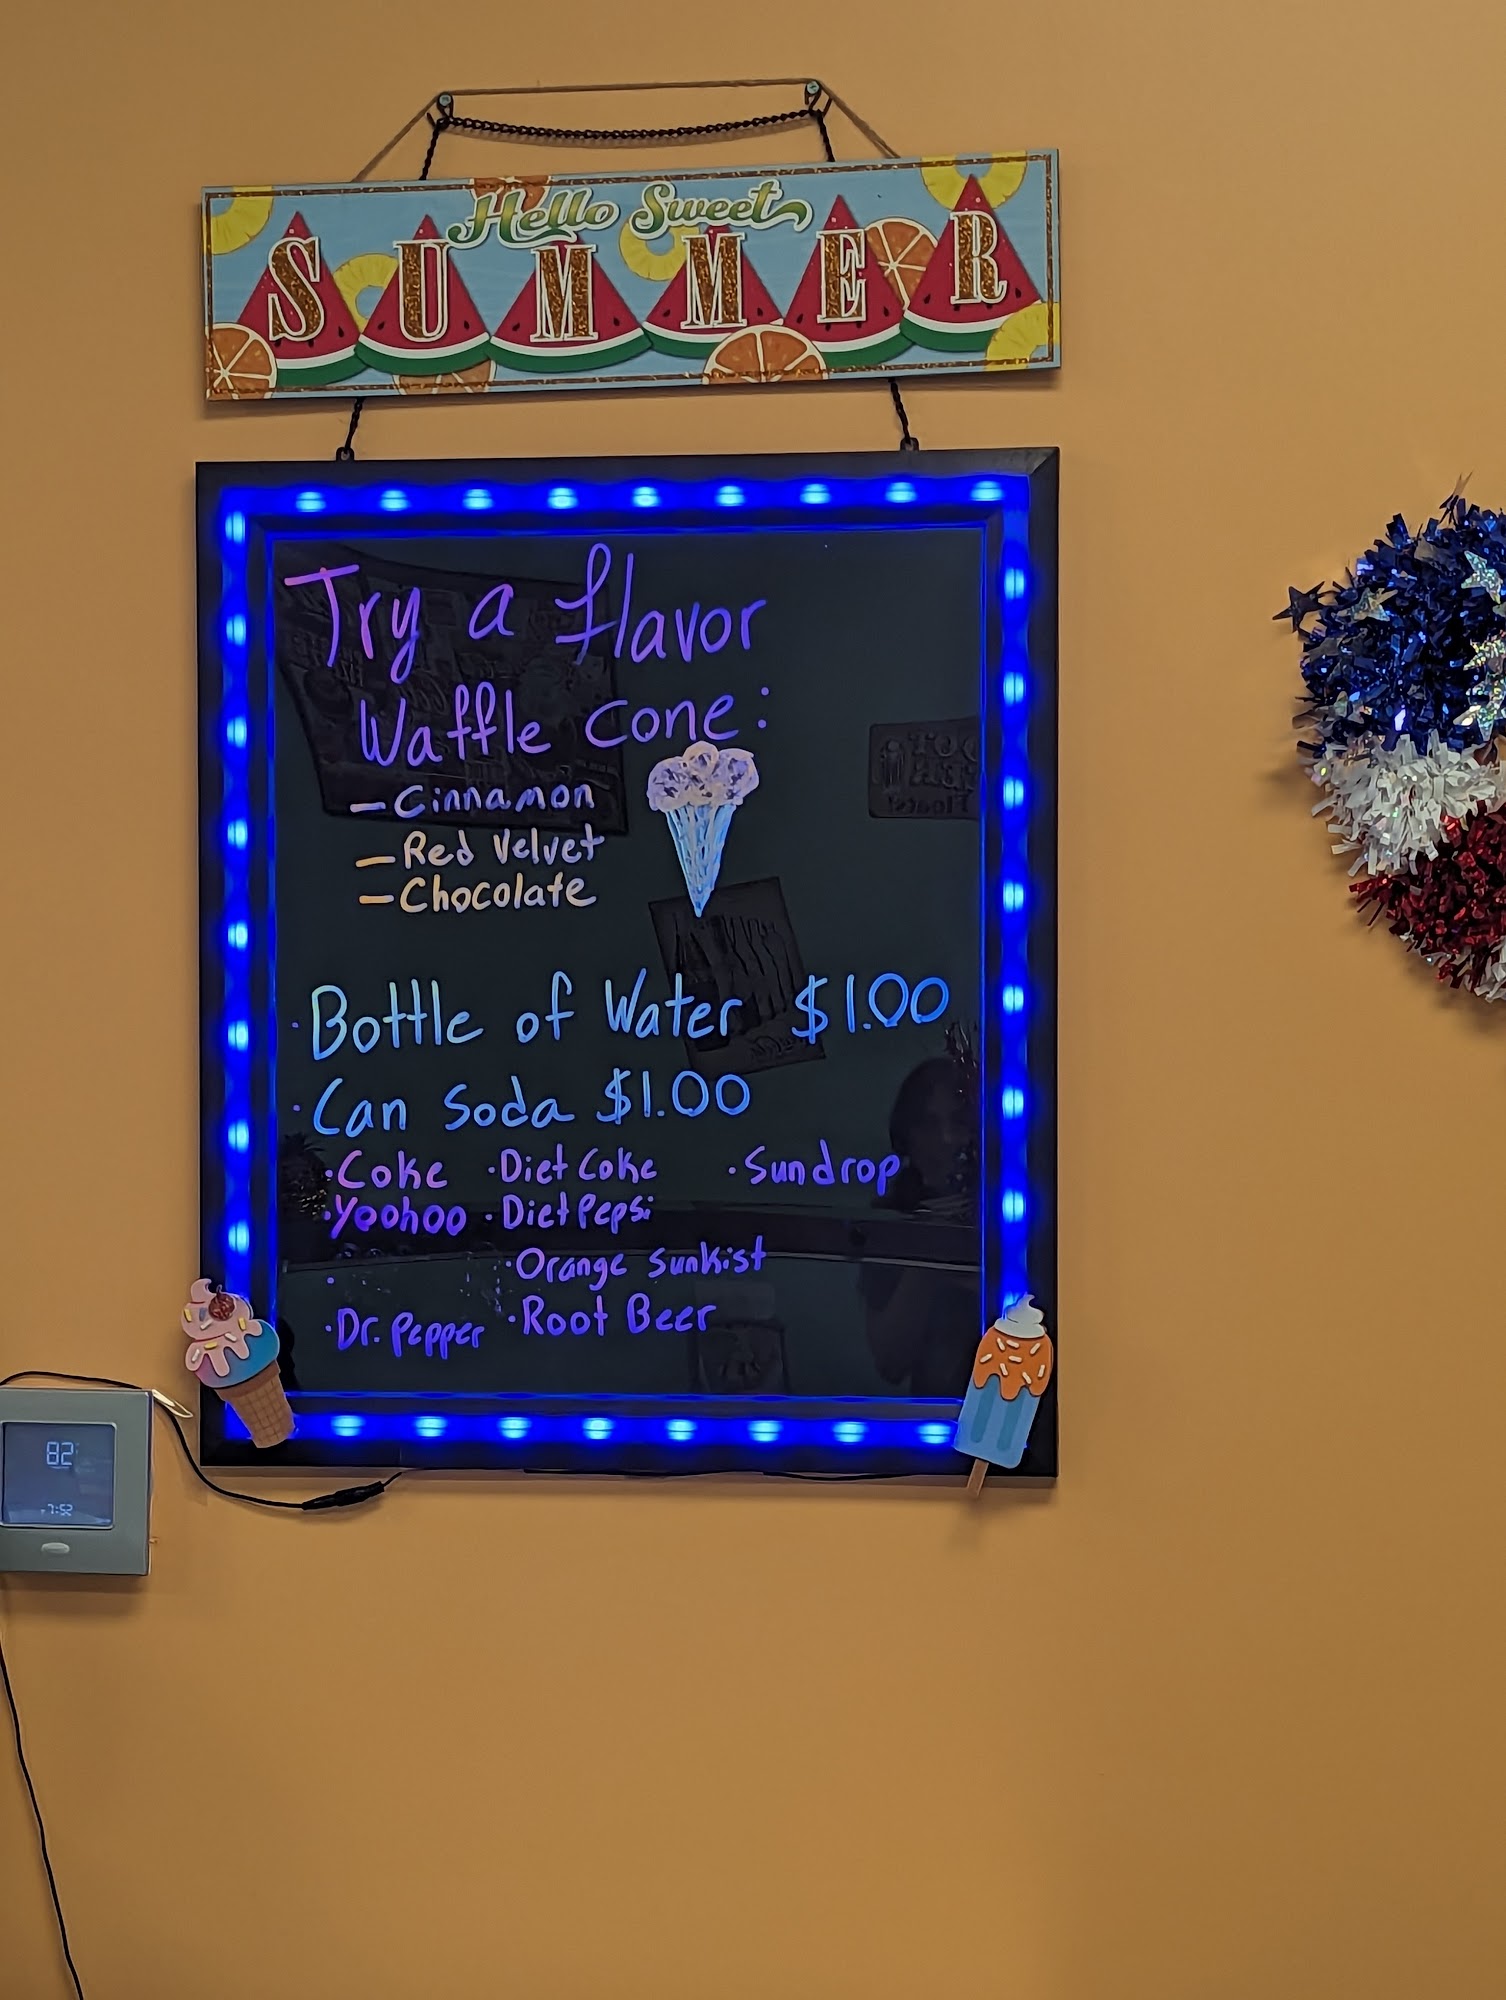 Hello Sweet
SUMMER
Try a flavor
Waffle cone:
- Cinnamon
- Red Velvet
- Chocolate
· Bottle of Water $1.00
· Can Soda $1.00
· Coke · Diet Coke · Sundrop
· Yoohoo · Diet Pepsi
· · Orange Sunkist
· Dr. Pepper · Root Beer
82
7:52